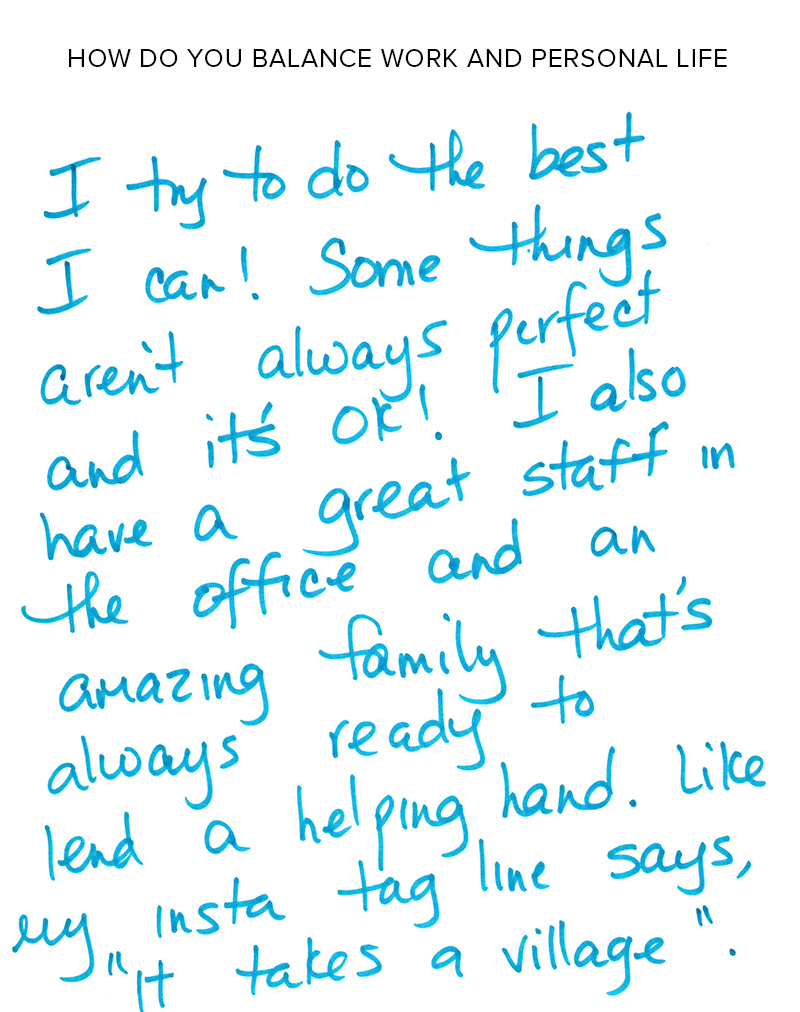 HOW DO YOU BALANCE WORK AND PERSONAL LIFE
I try to do the best
I can! Some things
aren't always perfect
and it's ok! I also
have a great staff in
the office and an
amazing family that's
always ready to
lend a helping hand. Like
my insta tag line says,
"it takes a village".